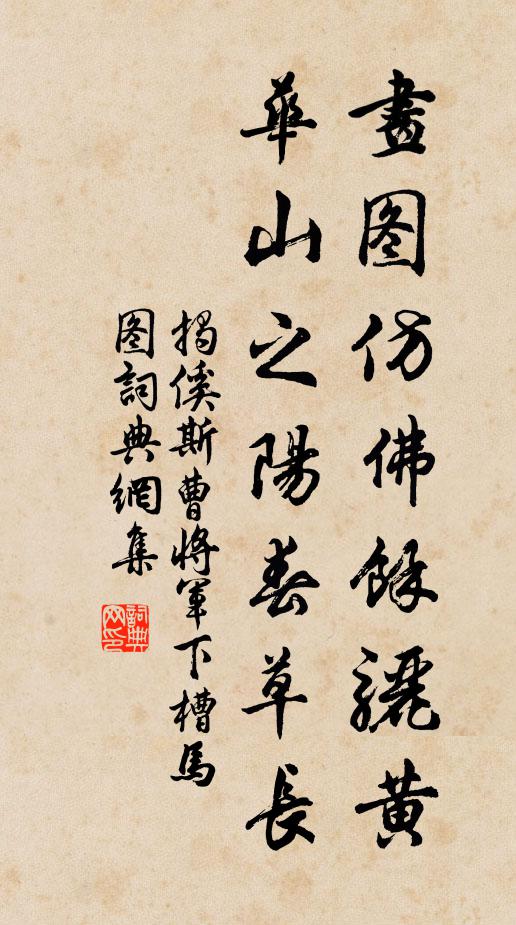 畫图仿佛餘驪黄
華山之陽春草長
揭傒斯曹將軍下槽馬
图詞典網集
詞典网印